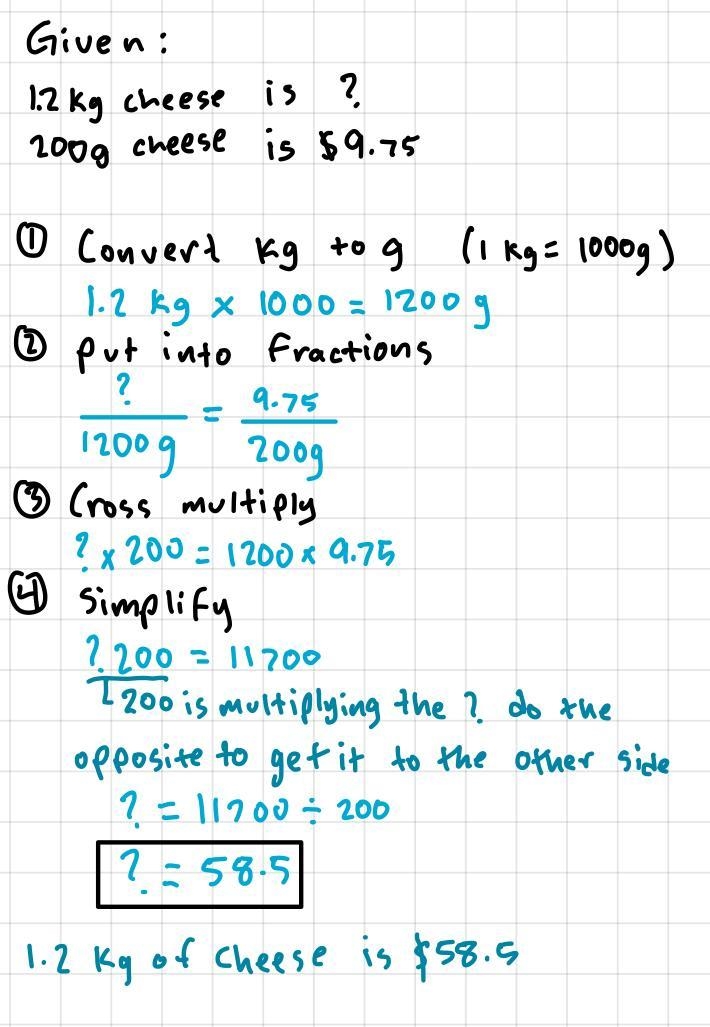 Given:
1.2 kg cheese is ?
200g cheese is $9.75
① Convert kg to g (1 kg = 1000g)
1.2 kg × 1000 = 1200 g
② put into fractions
? / 1200 g = 9.75 / 200g
③ Cross multiply
? × 200 = 1200 × 9.75
④ Simplify
?.200 = 11700
200 is multiplying the ? do the
opposite to get it to the other side
? = 11700 ÷ 200
? = 58.5
1.2 kg of cheese is $58.5